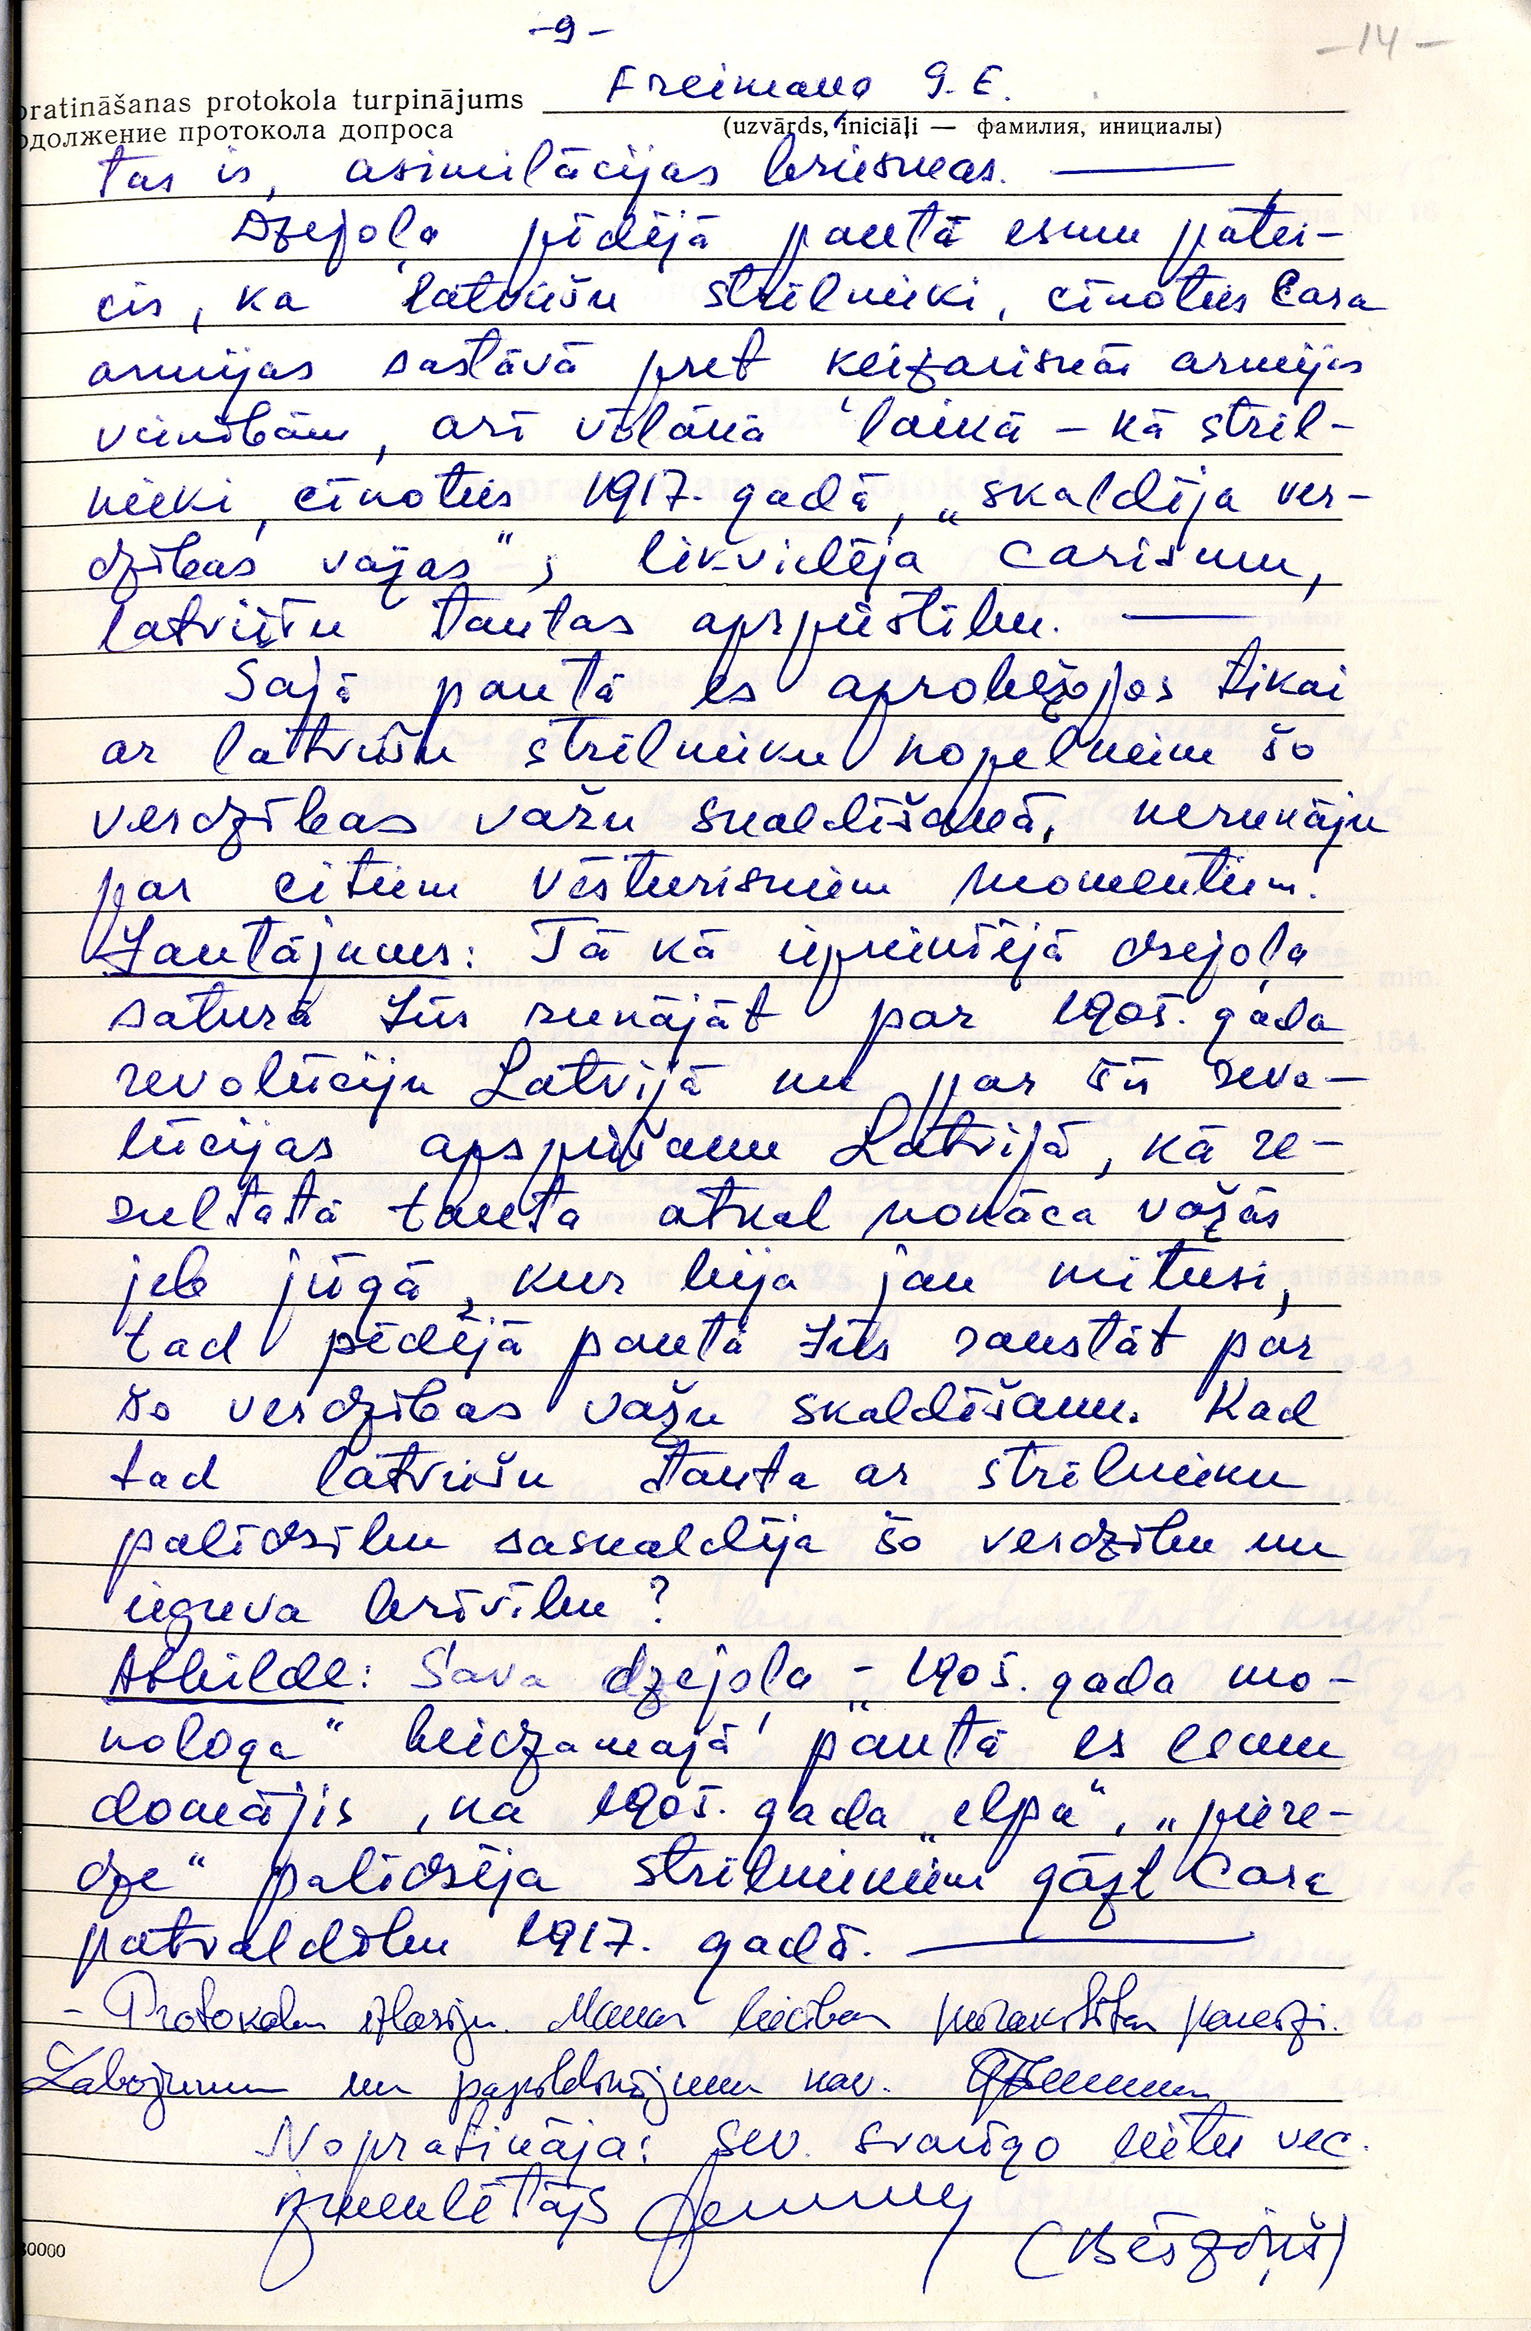 -9-
-14-
pratināšanas protokola turpinājums Freimaņa G. E.
одолжение протокола допроса (uzvārds, iniciāļi — фамилия, инициалы)
tas ir, asimilācijas briesmas.
Dzejoļa pēdējā pantā esmu patei-
cis, ka latviešu strēlnieki, cīnoties Cara
armijas sastāvā pret ķeizariskās armijas
vienībām, arī vēlākā laikā - kā strēl-
nieki, cīnoties 1917. gadā, „skaldīja ver-
dzības važas", likvidēja carismu,
latviešu tautas apspiestību.
Šajā pantā es aprobežojos tikai
ar latviešu strēlnieku nopelniem šo
verdzības važu skaldīšanā, nerunāju
par citiem vēsturiskiem momentiem.
Jautājums: Tā kā iepriekšējā dzejoļa
saturā Jūs runājāt par 1905. gada
revolūciju Latvijā un par šīs revo-
lūcijas apspiešanu Latvijā, kā re-
zultātā tauta atkal nonāca važās
jeb jūgā, kur bija jau mitusi,
tad pēdējā pantā Jūs rakstāt par
šo verdzības važu skaldīšanu. Kad
tad latviešu tauta ar strēlnieku
palīdzību saskaldīja šo verdzību un
ieguva brīvību?
Atbilde: Sava dzejoļa - „1905. gada mo-
nologa" beidzamajā pantā es esmu
domājis, ka 1905. gada „elpa", „piere-
dze" palīdzēja strēlniekiem gāzt Cara
patvaldību 1917. gadā.
- Protokolu izlasīju. Manas liecības pierakstītas pareizi.
Labojumu un papildinājumu nav.
Nopratināja: sev. svarīgo lietu vec.
izmeklētājs
(Bērziņš)
30000